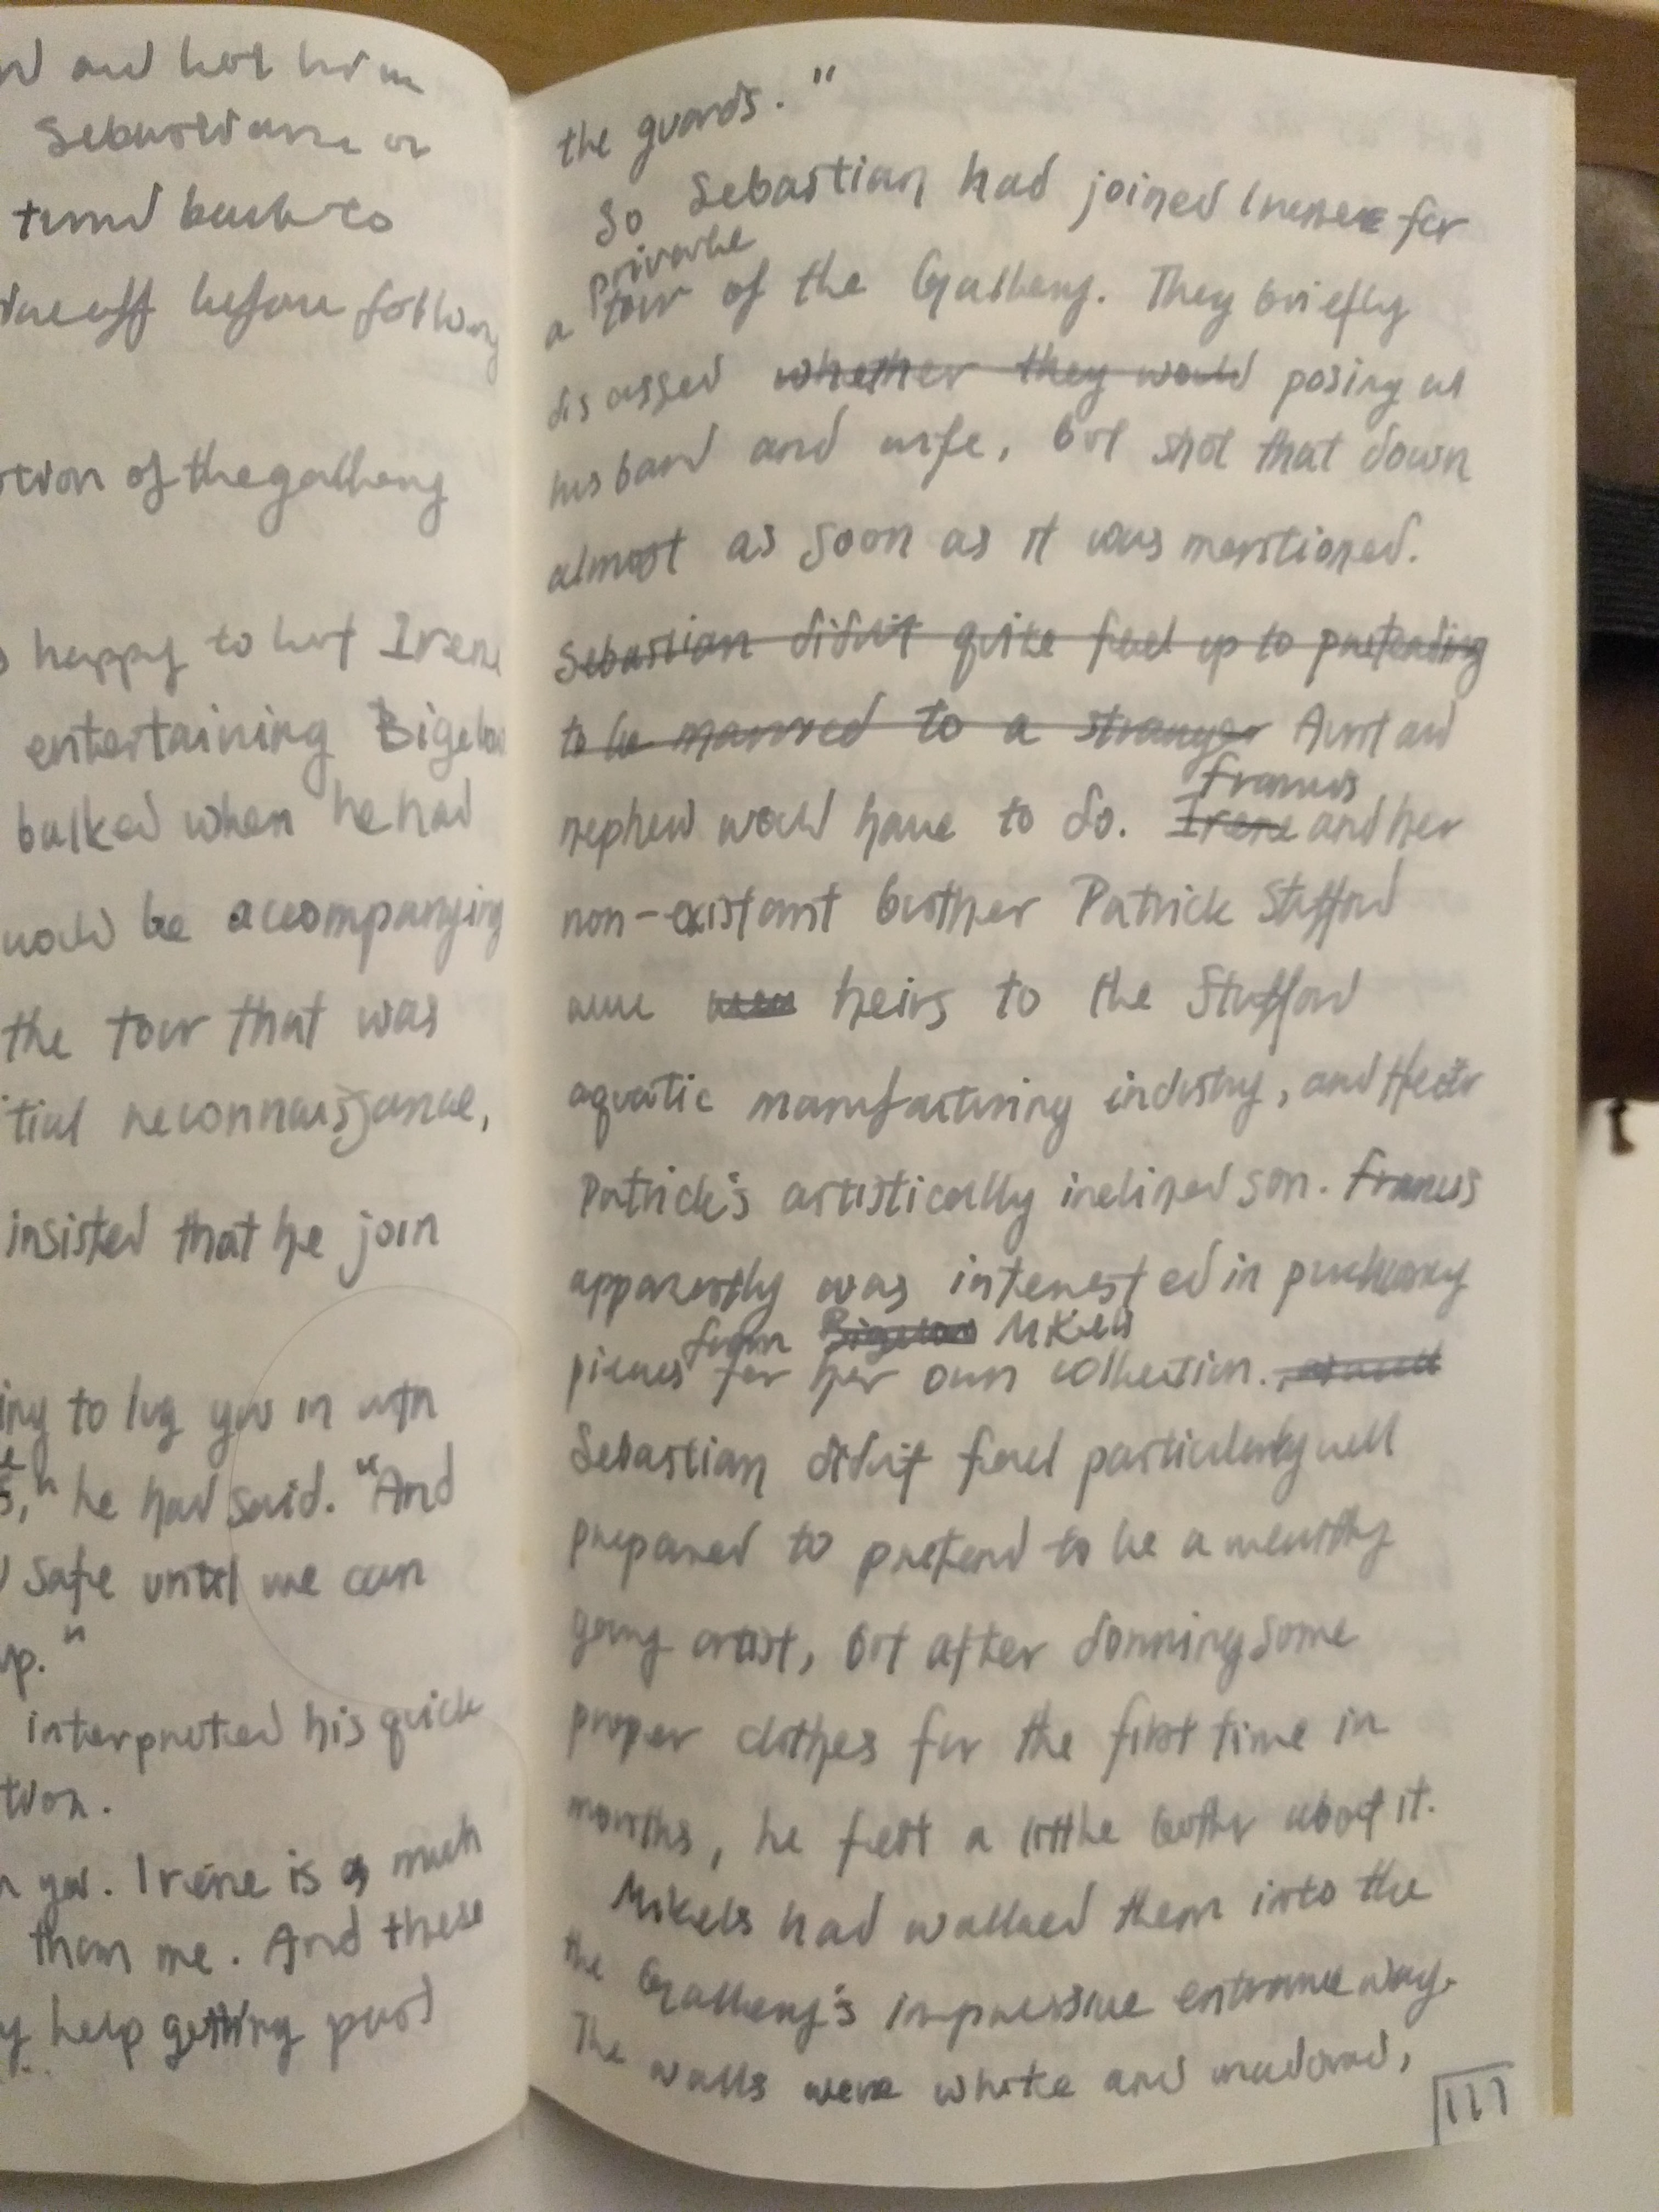 and hot him
Sebastian or
turned back to
before following
of the gallery
happy to let Irene
entertaining Bigelow
balked when he had
would be accompanying
the tour that was
reconnaissance,
insisted that he join
to lug you in with
," he had said. "And
safe until we can
up."
interpreted his quick
you. Irene is as much
than me. And these
help getting past
the guards."
So Sebastian had joined Irene for
private
a tour of the Gallery. They briefly
discussed whether they would posing as
husband and wife, but shot that down
almost as soon as it was mentioned.
Sebastian didn't quite feel up to pretending
to be married to a stranger Aunt and
Francis
nephew would have to do. Irene and her
non-existant brother Patrick Stafford
were heirs to the Stafford
aquatic manufacturing industry, and
Patrick's artistically inclined son. Francis
apparently was interested in purchasing
from Bigelow Mikels
pieces for her own collection.
Sebastian didn't feel particularly well
prepared to pretend to be a wealthy
young artist, but after donning some
proper clothes for the first time in
months, he felt a little better about it.
Mikels had walked them into the
the Gallery's impressive entrance way.
The walls were white and
111